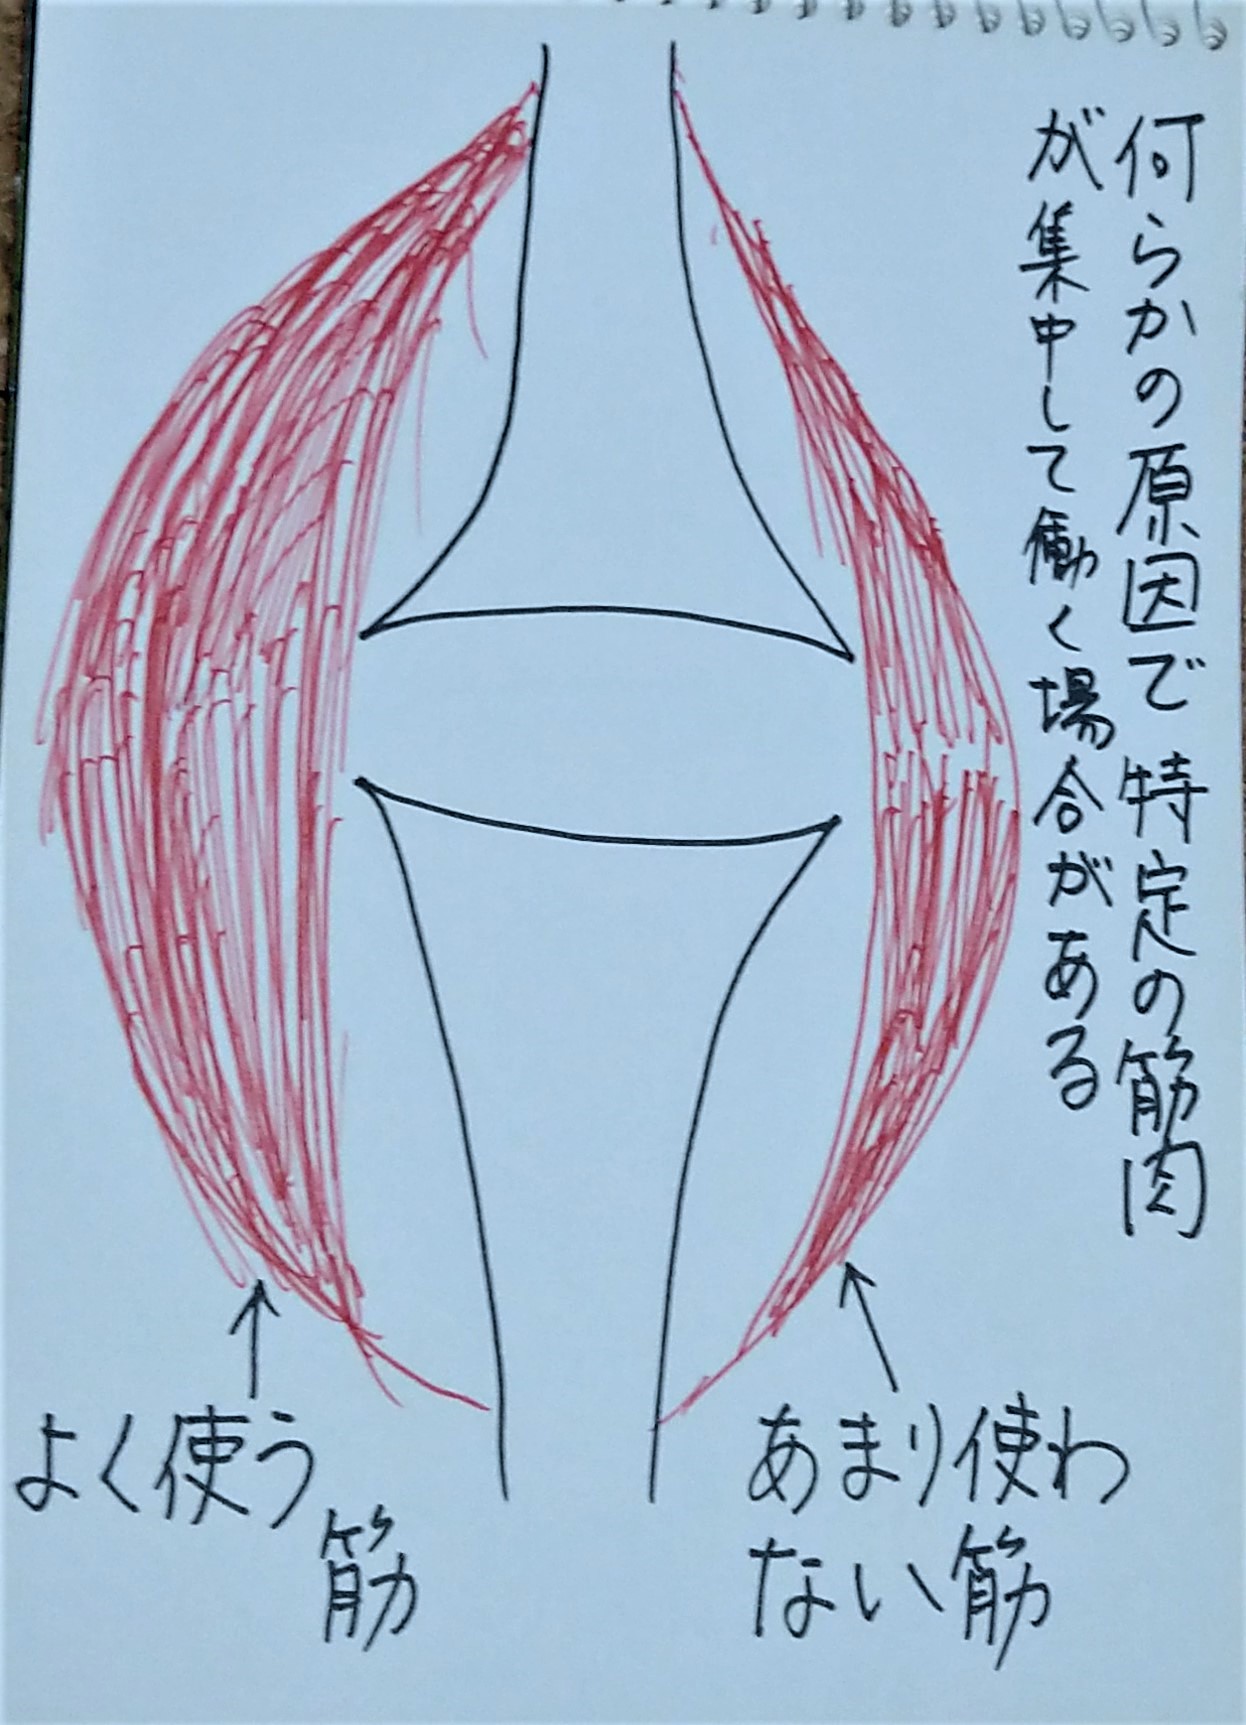 何らかの原因で特定の筋肉
が集中して働く場合がある
よく使う
筋
あまり使わ
ない筋